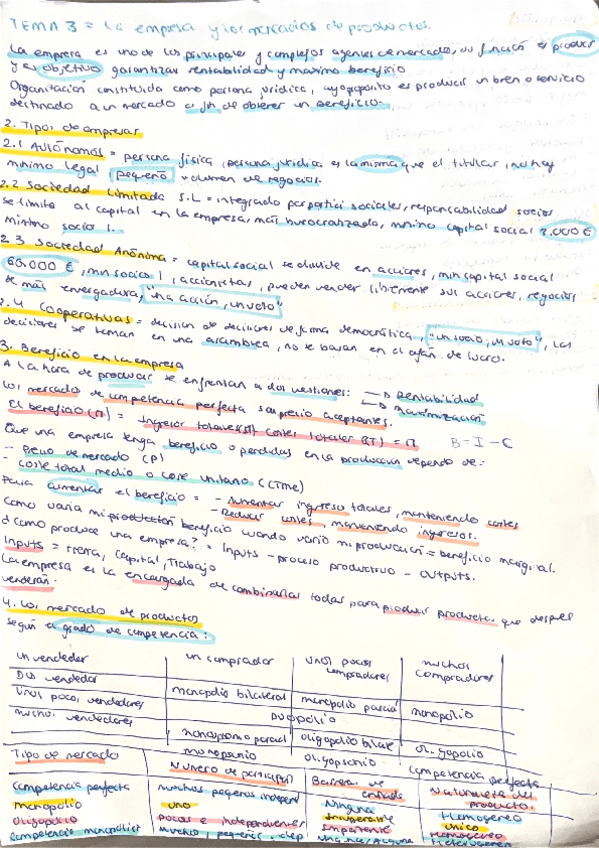 TEMA 3 = La empresa y los mercados de productos.
La empresa es uno de los principales y complejos agentes de mercado, su función es producir
y su objetivo garantizar rentabilidad y maximo beneficio
Organización constituida como persona jurídica, cuyo proposito es producir un bien o servicio
destinado a un mercado a fin de obtener un beneficio.
2. Tipos de empresas
2.1 Autónomos = persona física, persona jurídica es la misma que el titular, no hay
minimo legal, pequeño volumen de negocios.
2.2 Sociedad Limitada S.L = integrado por partici sociales, responsabilidad socios
se limita al capital en la empresa, más burocratizada, minimo capital social 3.000 €
minimo socio 1.
2.3 Sociedad Anónima = capital social se divide en acciones, min capital social
60.000 €, min socio 1, accionistas, pueden vender libremente sus acciones, negocios
de más envergadura, "una acción, un voto"
2.4 Cooperativas = decision de decisiones de forma democrática, "un socio, un voto", las
decisiones se toman en una asamblea, no se basan en el afán de lucro.
3. Beneficio en la empresa
A la hora de producir se enfrentan a dos cuestiones: → Rentabilidad
→ Maximización
Los mercado de competencia perfecta son precio aceptantes.
El beneficio (π) = Ingresos totales (IT) Costes totales (CT) = π B = I - C
Que una empresa tenga beneficio o perdidas en la producción depende de:
- Precio de mercado (P)
- Coste total medio o coste unitario (CTMe)
Para aumentar el beneficio = - Aumentar ingreso totales, manteniendo costes
- Reducir costes, manteniendo ingresos.
Como varia mi beneficio cuando vario mi producción = beneficio marginal.
¿como produce una empresa? = Inputs - proceso productivo - outputs.
Inputs = tierra, capital, trabajo
La empresa es la encargada de combinarlas todas para producir productos que despues
venderán.
4. Los mercado de productos
según el grado de competencia:
Un vendedor un comprador unos pocos compradores muchos compradores
Dos vendedor
Unos pocos vendedores monopolio bilateral monopolio parcial monopolio
muchos vendedores Duopolio
monopsonio parcial oligopolio bilate oligopolio
monopsonio oligopsonio competencia perfecta
Tipo de mercado Numero de participan Barreras de entrada Naturaleza del producto.
Competencia perfecta muchos pequeños independ Ninguna Homogeneo
Monopolio uno Insuperable único
Oligopolio pocos e independientes Importante Homogeneo
Competencia monopolist muchos, pequeñs, Ninguna/Alguna Heterogeneo